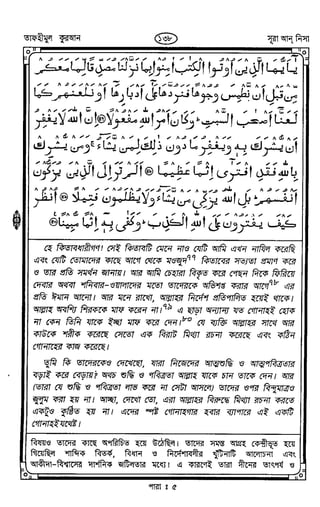 তাফহীমুল কুরআন
১৩৮
সূরা আন্ নিসা
يٰۤاَيُّهَا الَّذِيْنَ اُوْتُوا الْكِتٰبَ اٰمِنُوْا بِمَا نَزَّلْنَا مُصَدِّقًا لِّمَا مَعَكُمْ
مِّنْ قَبْلِ اَنْ نَّطْمِسَ وُجُوْهًا فَنَرُدَّهَا عَلٰۤى اَدْبَارِهَاۤ اَوْ نَلْعَنَهُمْ كَمَا
لَعَنَّاۤ اَصْحٰبَ السَّبْتِ ؕ وَكَانَ اَمْرُ اللّٰهِ مَفْعُوْلًا اِنَّ اللّٰهَ لَا يَغْفِرُ
اَنْ يُّشْرَكَ بِهٖ وَيَغْفِرُ مَا دُوْنَ ذٰلِكَ لِمَنْ يَّشَآءُ ۚ وَمَنْ يُّشْرِكْ
بِاللّٰهِ فَقَدِ افْتَرٰۤى اِثْمًا عَظِيْمًا اَلَمْ تَرَ اِلَى الَّذِيْنَ يُزَكُّوْنَ
اَنْفُسَهُمْ ؕ بَلِ اللّٰهُ يُزَكِّيْ مَنْ يَّشَآءُ وَلَا يُظْلَمُوْنَ فَتِيْلًا اُنْظُرْ
كَيْفَ يَفْتَرُوْنَ عَلَى اللّٰهِ الْكَذِبَ ؕ وَكَفٰى بِهٖۤ اِثْمًا مُّبِيْنًا
হে কিতাবধারীগণ! সেই কিতাবটি মেনে নাও যেটি আমি এখন নাযিল করেছি
এবং যেটি তোমাদের কাছে আগে থেকে মওজুদ৭৭ কিতাবের সত্যতা প্রমাণ করে
ও তার প্রতি সমর্থন জানায়। আর আমি চেহারা বিকৃত করে পেছন দিকে ফিরিয়ে
দেবার অথবা শনিবার-ওয়ালাদের মতো তাদেরকে অভিশপ্ত করার আগে৭৮ এর
প্রতি ঈমান আনো। আর মনে রাখো, আল্লাহর নির্দেশ প্রতিপালিত হয়েই থাকে।
আল্লাহ অবশ্যি শিরককে মাফ করেন না।৭৯ এ ছাড়া অন্যান্য যত গোনাহই হোক
না কেন তিনি যাকে ইচ্ছা মাফ করে দেন।৮০ যে ব্যক্তি আল্লাহর সাথে আর
কাউকে শরীক করেছে সেতো এক বিরাট মিথ্যা রচনা করেছে এবং কঠিন
গোনাহের কাজ করেছে।
তুমি কি তাদেরকেও দেখেছো, যারা নিজেদের আত্মশুদ্ধি ও আত্মপবিত্রতার
বড়াই করে বেড়ায়? অথচ শুদ্ধি ও পবিত্রতা আল্লাহ যাকে চান তাকে দেন। আর
(তারা যে শুদ্ধি ও পবিত্রতা লাভ করে না সেটা আসলে) তাদের ওপর বিন্দুমাত্রও
জুলুম করা হয় না। আচ্ছা, দেখো তো, এরা আল্লাহর বিরুদ্ধে মিথ্যা রচনা করতে
একটুও কুণ্ঠিত হয় না। এদের স্পষ্ট গোনাহগার হবার ব্যাপারে এই একটি
গোনাহইযথেষ্ট।
বিষয়ও তাদের কাছে অপরিচিত হয়ে উঠেছিল। তাদের সমস্ত আগ্রহ কেন্দ্রীভূত হয়ে
গিয়েছিল শাব্দিক বিতর্ক, বিধান ও নির্দেশাবলীর খুঁটিনাটি আলোচনা এবং
আকীদা-বিশ্বাসের দার্শনিক জটিলতার মধ্যে। এ কারণেই তারা দীনের তাৎপর্য ও
পারা : ৫